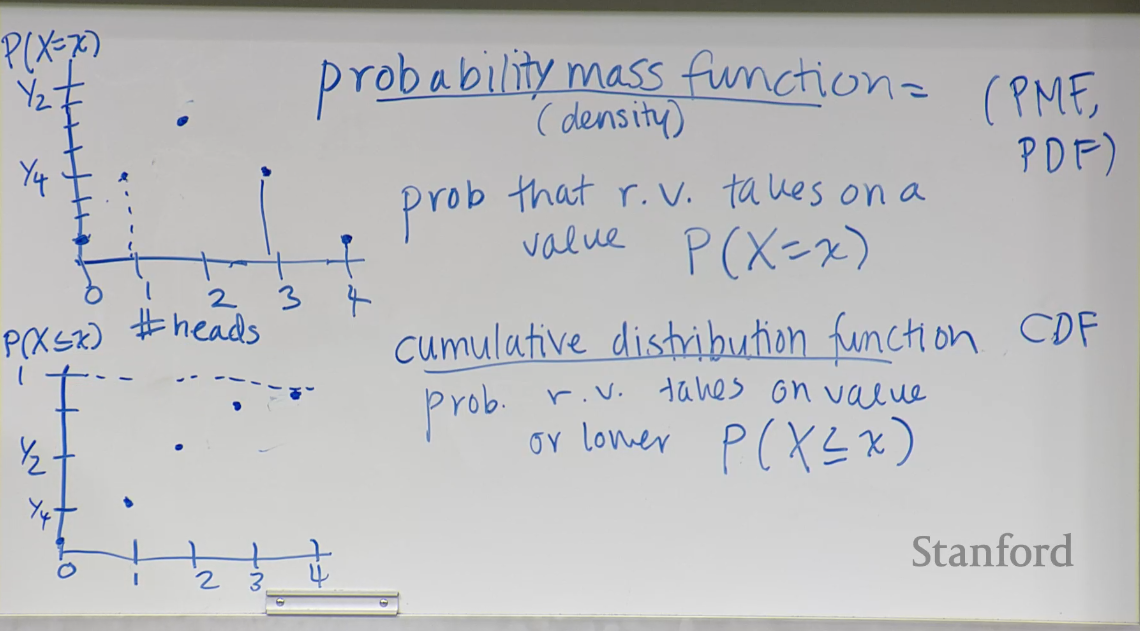 P(X=x)
1/2
1/4
0 1 2 3 4
# heads
probability mass function = (PMF,
(density) PDF)
prob that r.v. takes on a
value P(X=x)
P(X≤x)
1
1/2
1/4
0 1 2 3 4
cumulative distribution function CDF
prob. r.v. takes on value
or lower P(X≤x)
Stanford